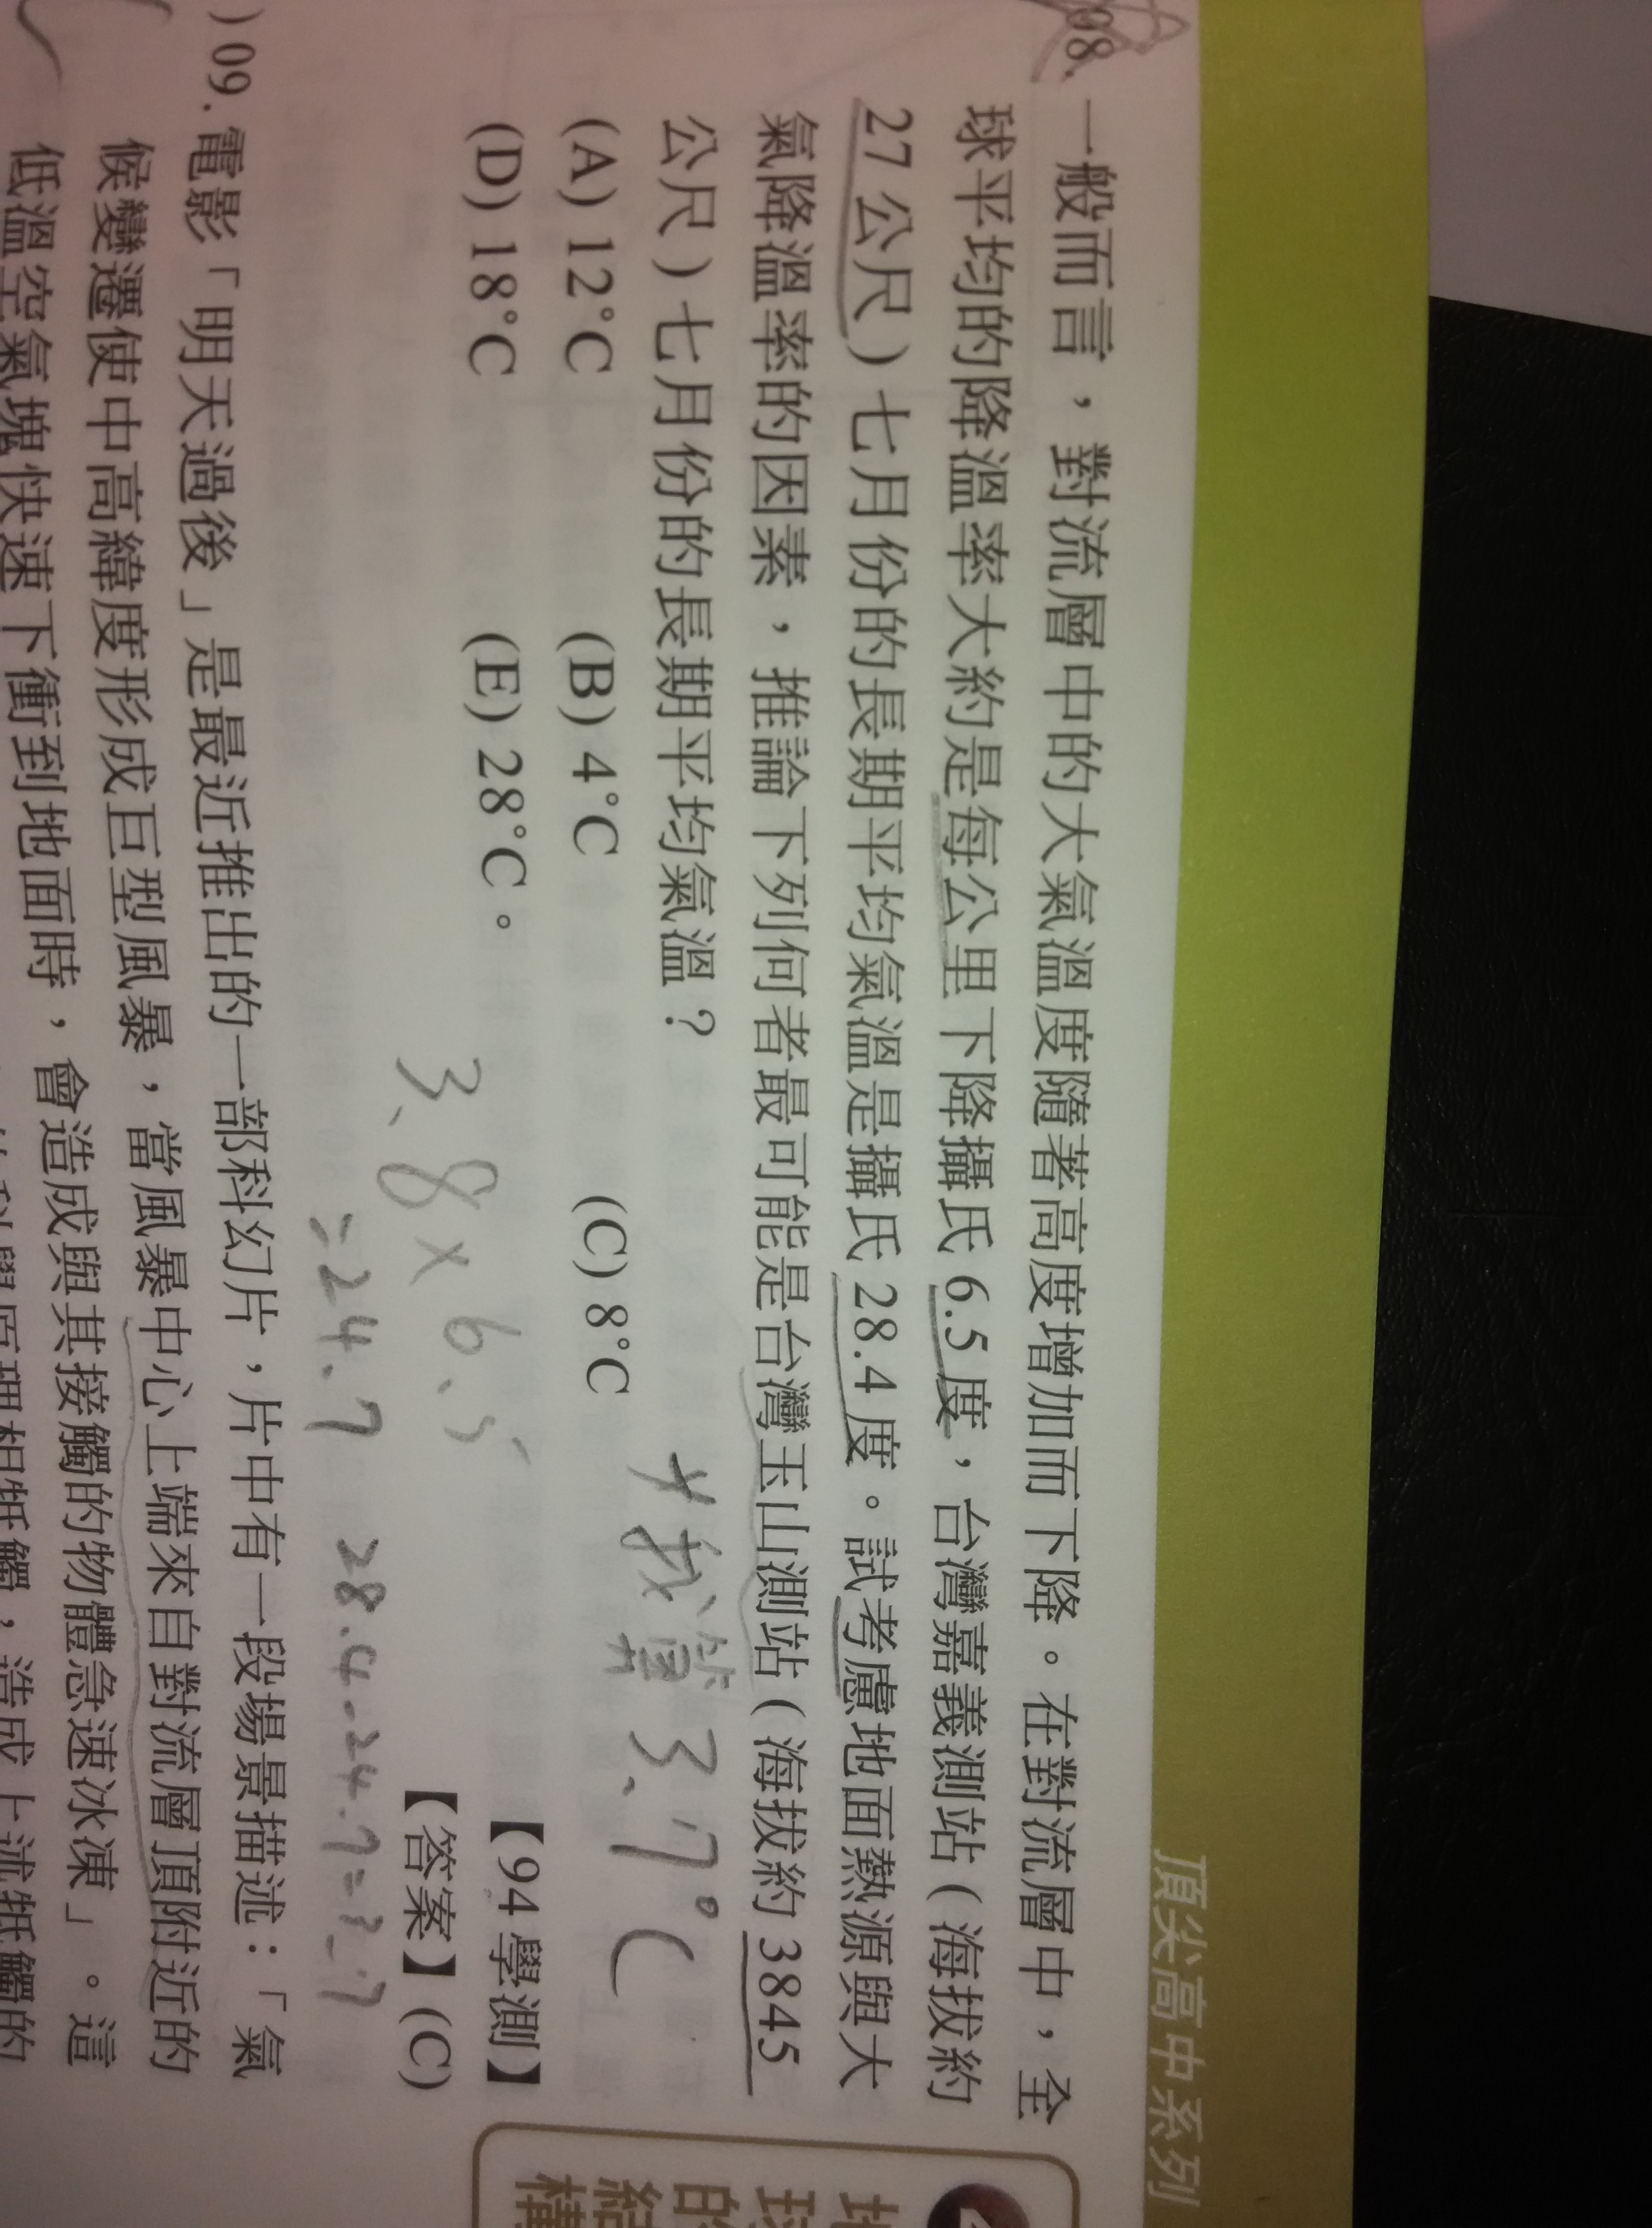 頂尖高中系列
08. 一般而言，對流層中的大氣溫度隨著高度增加而下降。在對流層中，全
球平均的降溫率大約是每公里下降攝氏 6.5 度，台灣嘉義測站（海拔約
27 公尺）七月份的長期平均氣溫是攝氏 28.4 度。試考慮地面熱源與大
氣降溫率的因素，推論下列何者最可能是台灣玉山測站（海拔約 3845
公尺）七月份的長期平均氣溫？
(A) 12°C (B) 4°C (C) 8°C
(D) 18°C (E) 28°C。
我算 3.7°C
【94 學測】
【答案】(C)
3.8×6.5
=24.7
28.4-24.7=3.7
) 09. 電影「明天過後」是最近推出的一部科幻片，片中有一段場景描述：「氣
候變遷使中高緯度形成巨型風暴，當風暴中心上端來自對流層頂附近的
低溫空氣塊快速下衝到地面時，會造成與其接觸的物體急速冰凍」。這